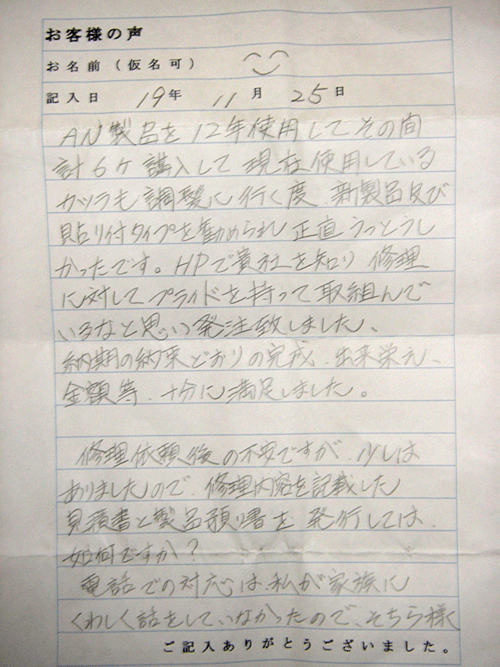 お客様の声
お名前（仮名可）
記入日 19年 11月 25日
AN製品を12年使用してその間
計6ケ購入して現在使用している
カツラも調髪に行く度 新製品及び
貼り付タイプを勧められ正直うっとうし
かったです。HPで貴社を知り 修理
に対してプライドを持って取組んで
いるなと思い発注致しました、
納期の約束どおりの完成、出来栄え、
金額等、十分に満足しました。
修理依頼後の不安ですが、少しは
ありましたので、修理内容を記載した
見積書と製品預り書を発行しては
如何ですか?
電話での対応は私が家族に
くわしく話をしていなかったので、そちら様
ご記入ありがとうございました。